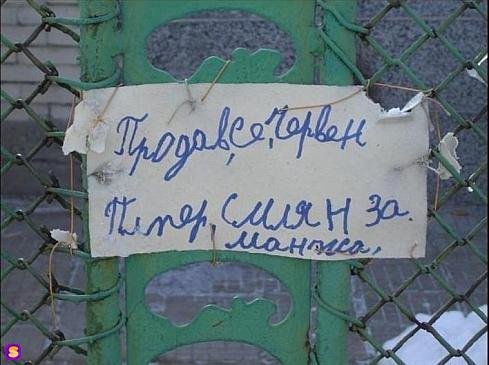 Продав,Се,Червен
Пипер, Смлян за.
манжа,